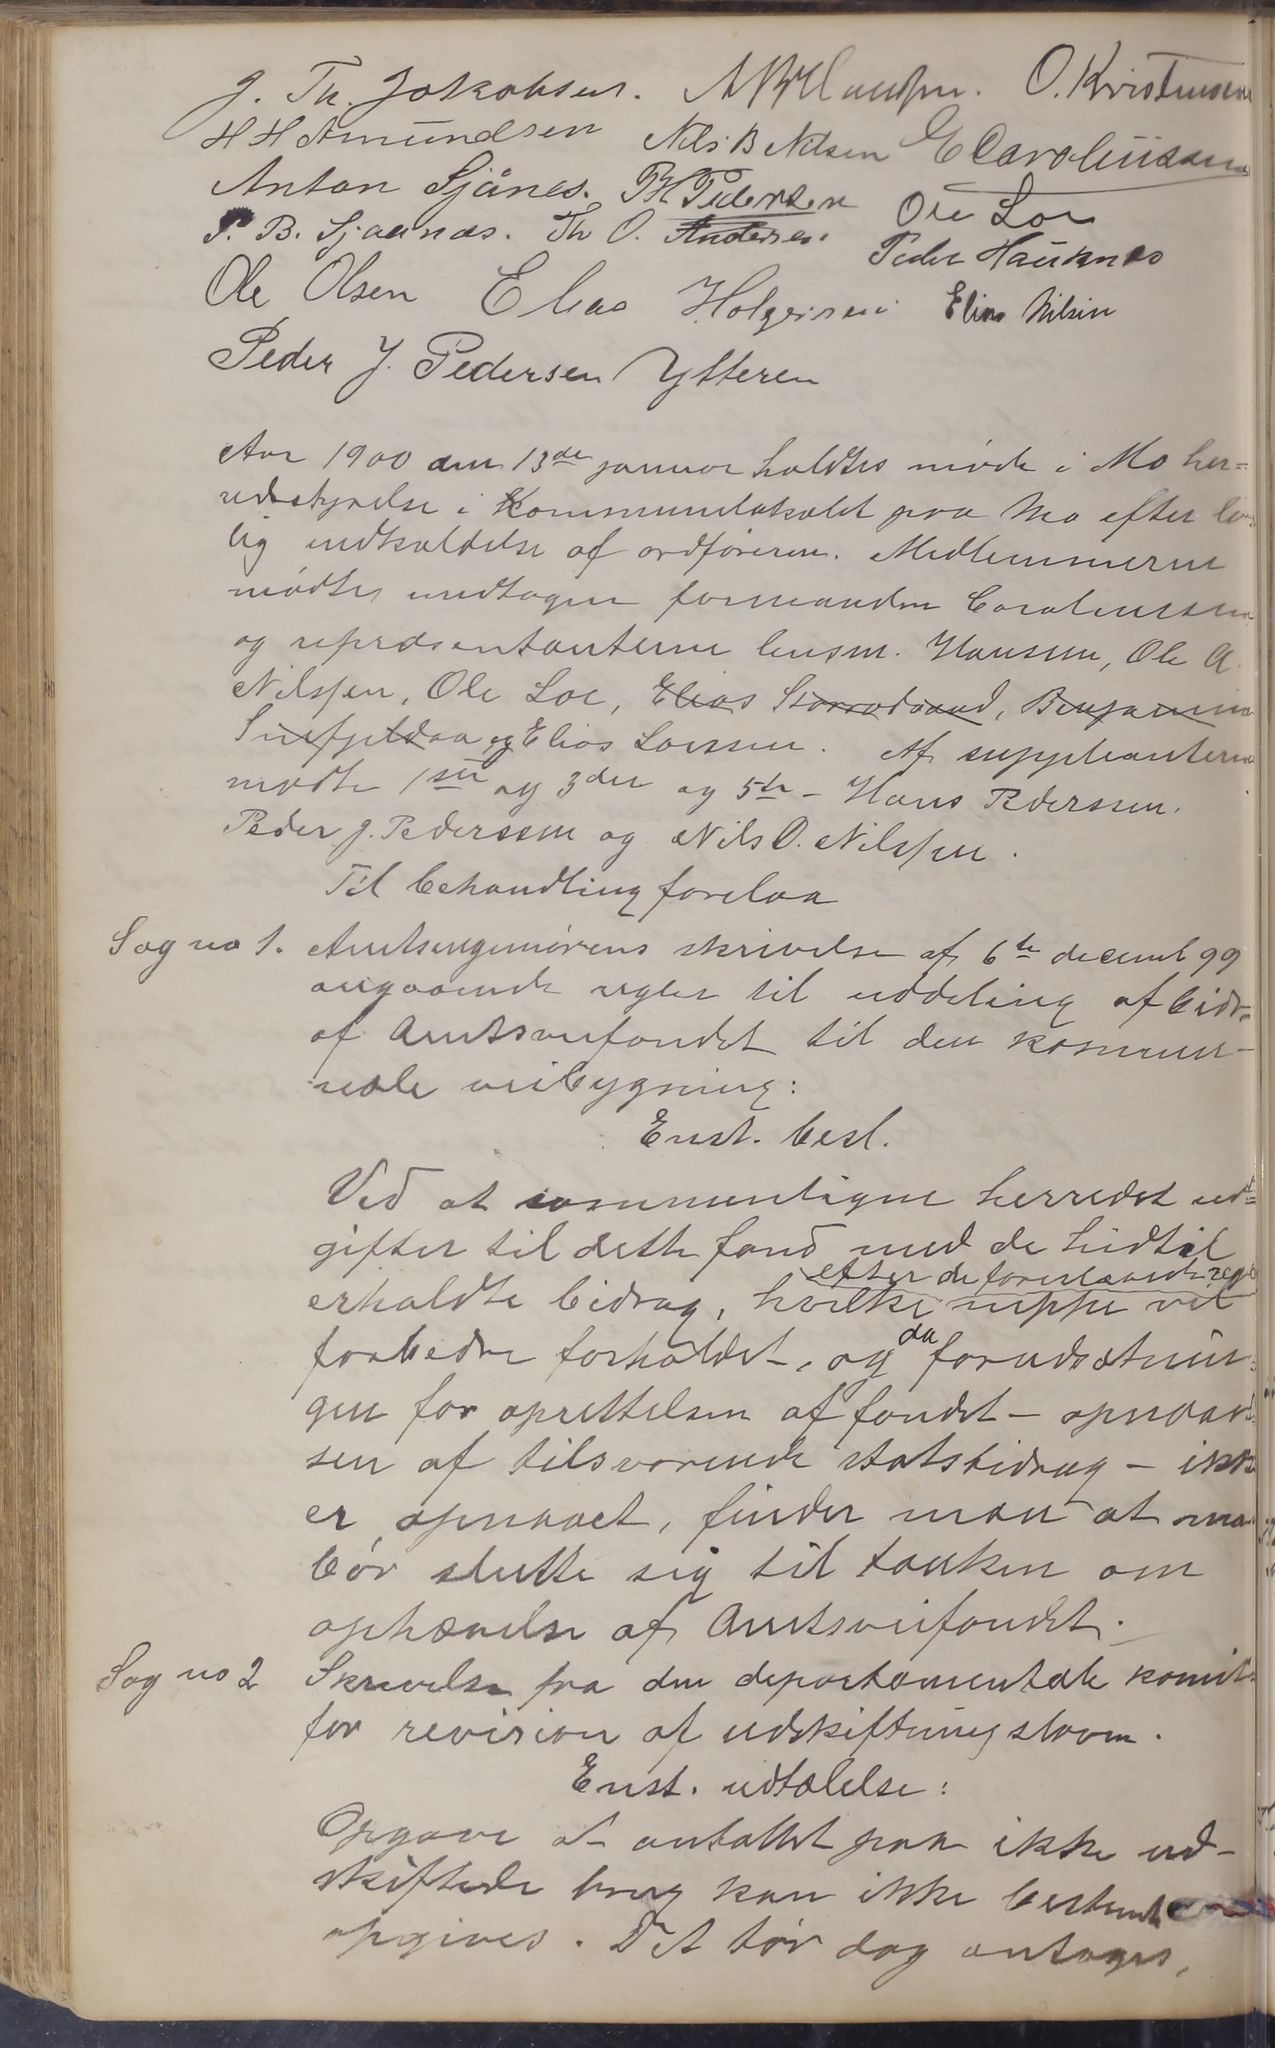 J. Th. Jakobsen. O. Kristensen
H H Amundsen Nils B Nilsen E Carolinssen
Anton Sjånes. PH Pedersen Ole Loe
P. B. Sjaanæs. Th O. Andersen. Peder Hauknes
Ole Olsen Elias Holgersen Elias Nilsen
Peder J. Pedersen Ytteren
Aar 1900 den 13de januar holdtes møde i Mo her-
redsstyrelse i Kommunelokalet paa Mo efter lov
lig indkaldelse af ordføreren. Medlemmerne
mødte undtagen formanden Carolinssen
og repræsentanterne lensm. Hanssen, Ole A.
Nilssen, Ole Loe, Elias Storrødvand, Benjamin
Snefjeldaa og Elias Larssen. Af suppleanterne
mødte 1ste og 3die og 5te - Hans Pederssen.
Peder J. Pederssen og Nils O. Nilssen.
Til behandling forelaa
Sag no 1. Amtsingeniørens skrivelse af 6te decemb 99
angaaende regler til uddeling af bidr.
af Amtsveifondet til den kommu-
nale veibygning:
Enst. besl.
Ved at sammenligne herredet ud-
gifter til dette fond med de hidtil
efter de foreslaaede regl
erholdte bidrag, hvilke neppe vil
forbedre forholdet, og da forudsætnin-
gen for oprettelsen af fondet - opnaael
sen af tilsvarende statsbidrag - ikke
er opnaaet, finder man at ma
bør slutte sig til tanken om
ophævelse af Amtsveifondet.
Sag no 2 Skrivelse fra den departementale komite
for revision af udskiftningsloven.
Enst. udtalelse:
Opgave over antallet paa ikke ud-
skiftede brug kan ikke bestemt
opgives. Det tør dog antages,